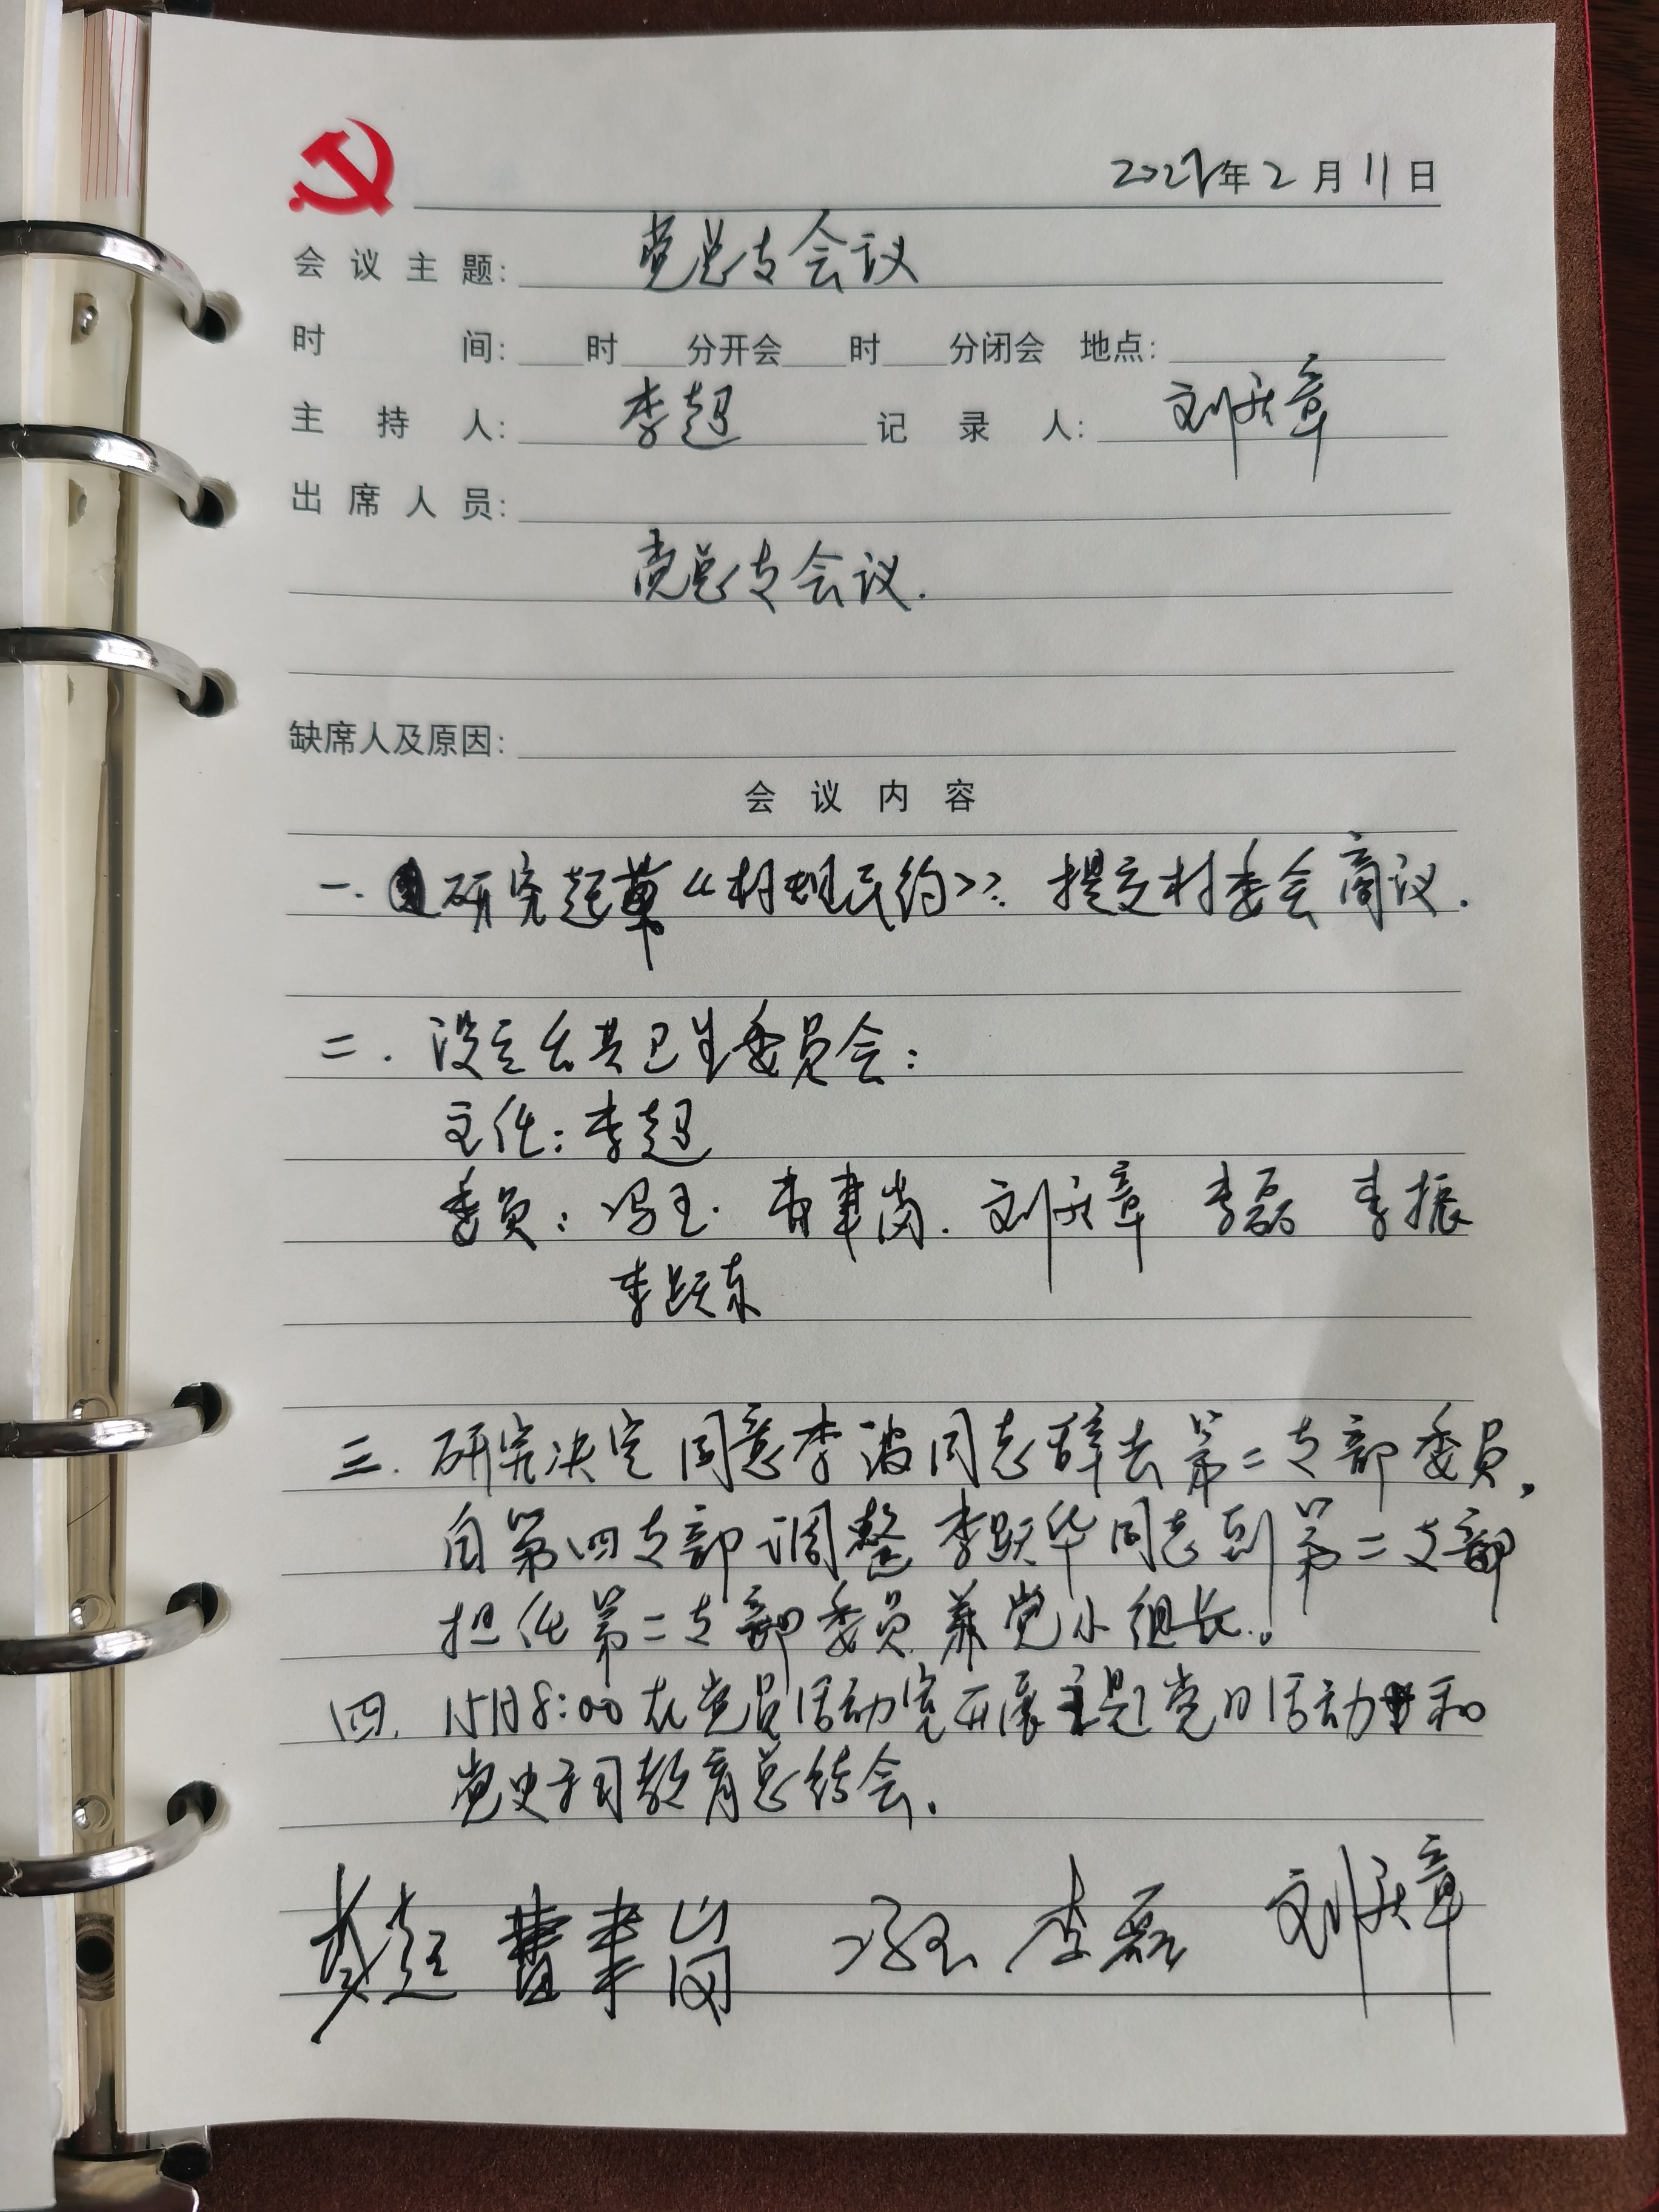 年2月11日
会议主题: 党总支会议
时间: 时 分开会 时 分闭会 地点:
主持人: 李超 记录人: 刘庆章
出席人员:
党总支会议.
缺席人及原因:
会议内容
一. 研究起草《村规民约》. 提交村委会商议.
二. 设立公共卫生委员会:
主任: 李超
委员: 冯玉. 岗. 刘庆章 李磊 李振
李跃东
三. 研究决定 同意李波同志辞去第二支部委员,
自第四支部调整 李跃华同志到第二支部
担任第二支部委员兼党小组长.
四. 15日8:00在党员活动室开展主题党日活动和
党史学习教育总结会.
李超 岗 冯玉 李磊 刘庆章